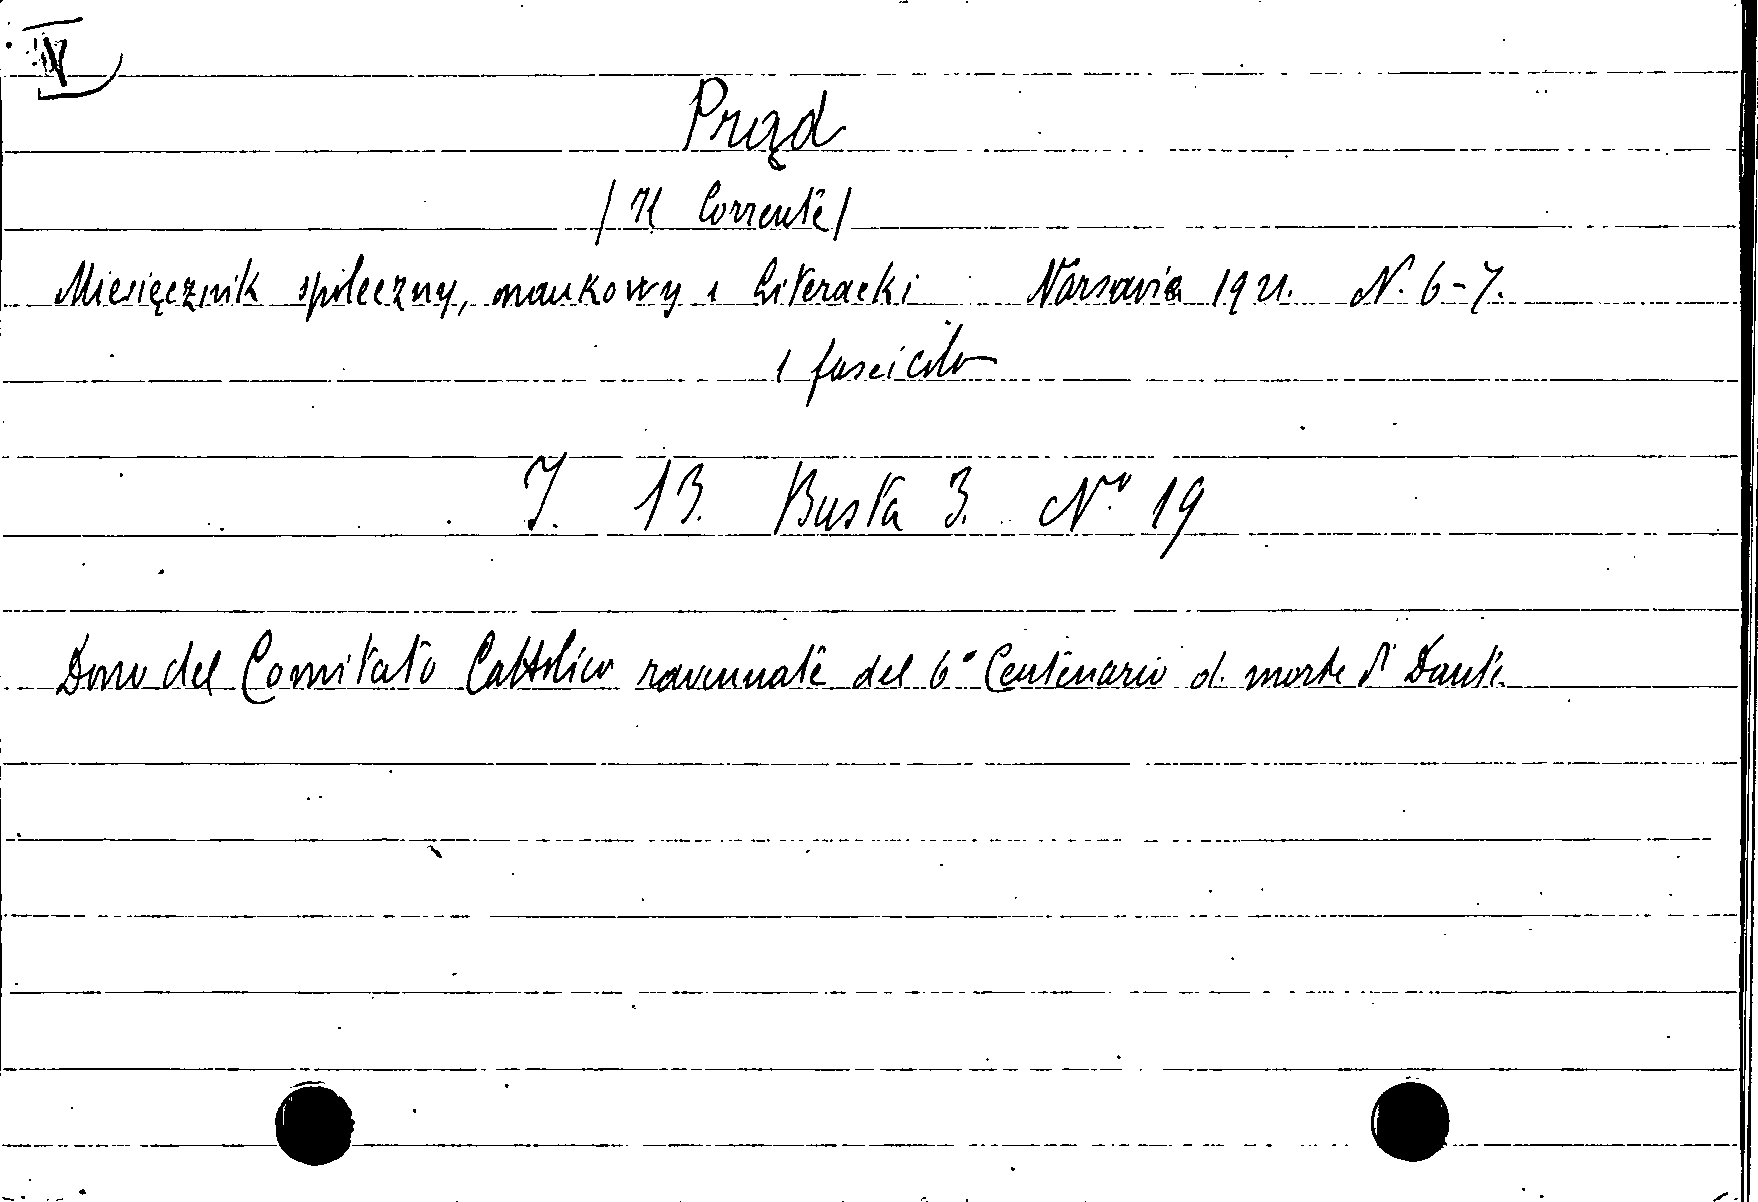 V
Prąd
/Il Corrente/
Miesięcznik spoleczny, naukowy i Literacki Varsavia 1921. N. 6-7.
1 fascicolo
I. 13. Busta 3. N.º 19
Dono del Comitato Cattolico ravennate del 6º Centenario d. morte di Dante.